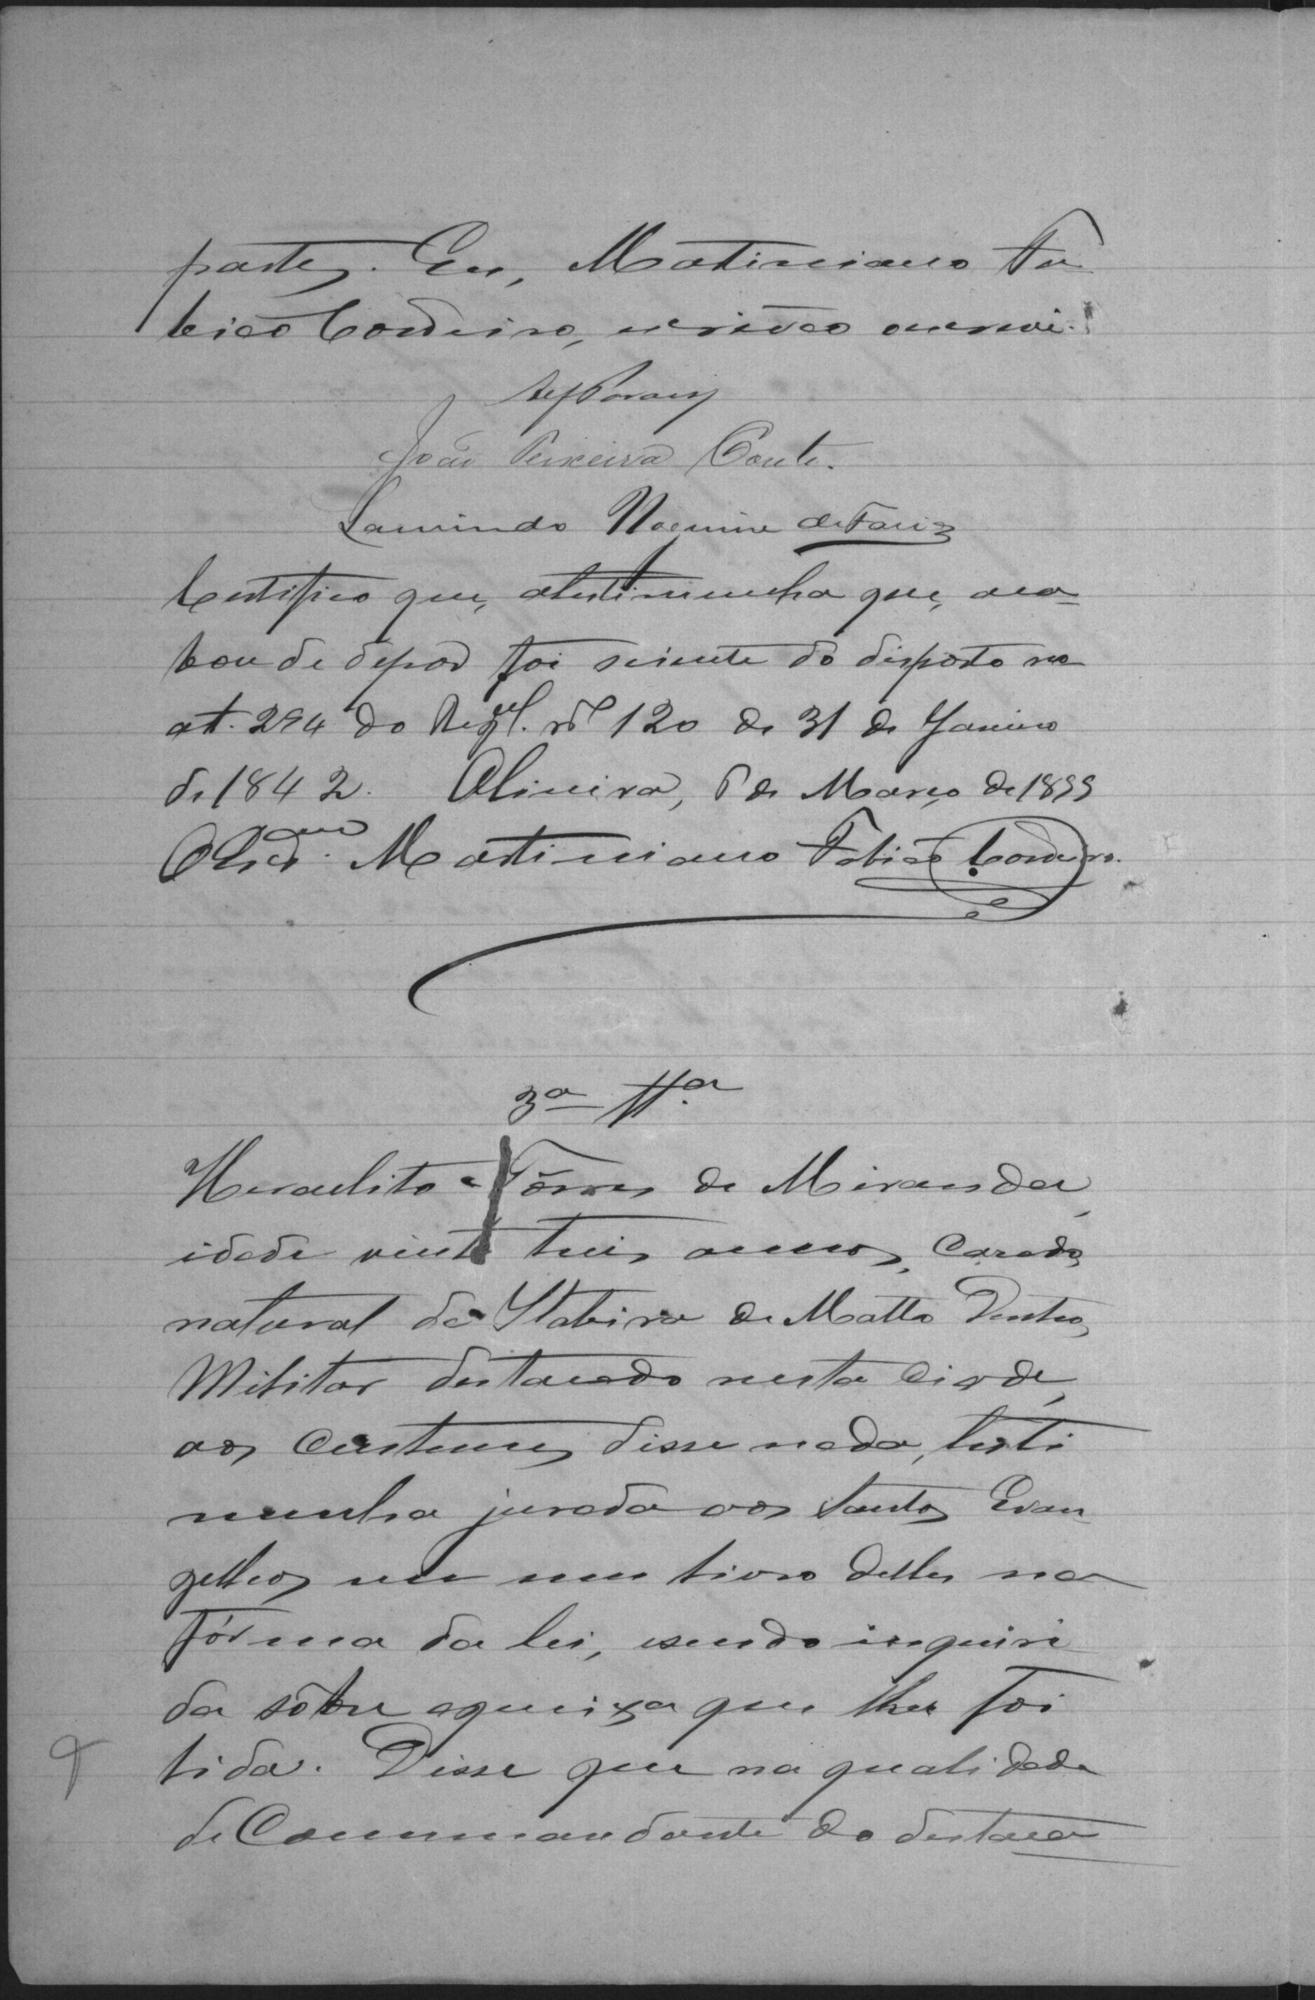 partes. Eu, Martiniano Fa
bião Cordeiro, escrivão oescrevi.
João Teixeira Conte.
Laurindo Noemine de Faria
Certifico que, atestimunha que, aca-
bou de depor foi sciente do disposto no
art. 294 do Regul. nº 120 de 31 de Janeiro
de 1842. Oliveira, 6 de Março de 1899
OEscr.vão Martiniano Fabião Cordeiro.
3ª Tª
Heraclito Tôrres de Miranda,
idade vinte treis annos, casado,
natural de Itabira de Matto Dentro,
Militar destacado nesta cidade,
aos custumes disse nada, testi
munha jurada aos Santos Evan
gelhos em um livro delles na
fórma da lei, esendo inquiri
da sôbre aqueixa que lhes foi
lida. Disse que na qualidade
de Commandante do destaca